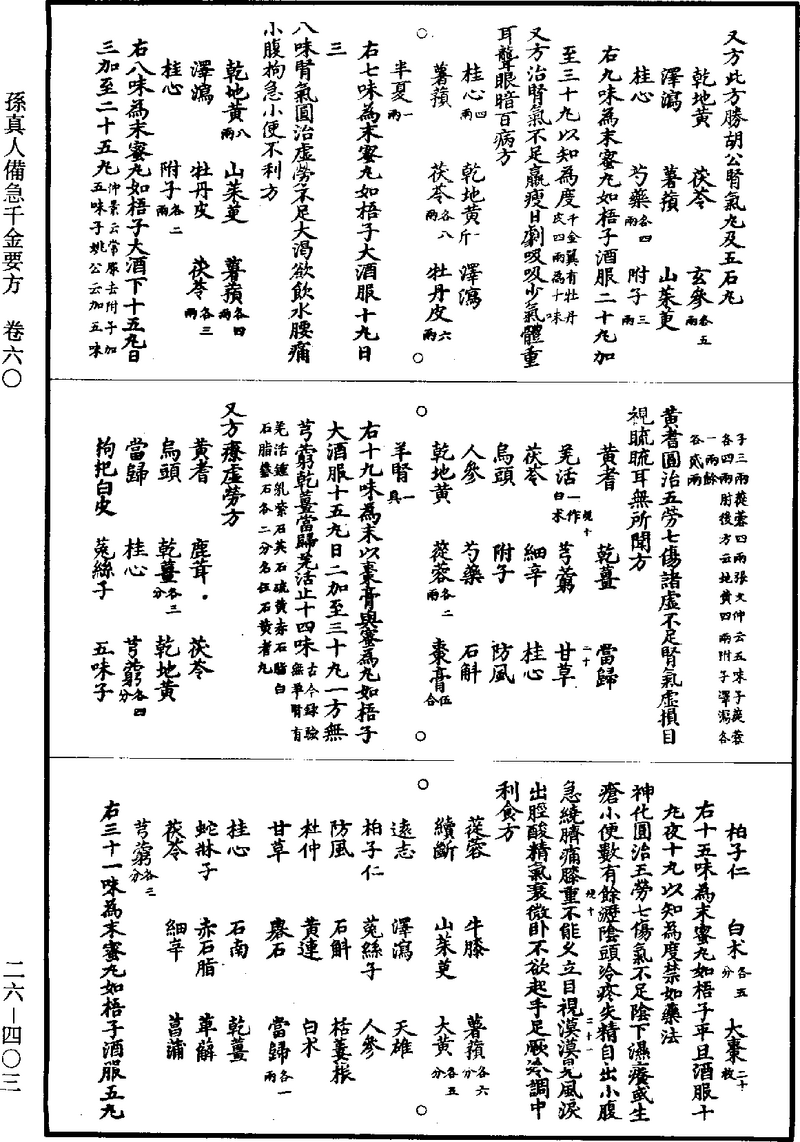 又方此方勝胡公腎氣丸及五石丸
乾地黃 茯苓 玄參各五兩
澤瀉 薯蕷 山茱萸
桂心 芍藥各四兩 附子三兩
右九味為末蜜丸如梧子酒服二十丸加
至三十丸以知為度千金翼有牡丹皮四兩為十味
又方治腎氣不足羸瘦日劇吸吸少氣體重
耳聾眼暗百病方
桂心四兩 乾地黃一斤 澤瀉
薯蕷 茯苓各八兩 牡丹皮六兩
半夏一兩
右七味為末蜜丸如梧子大酒服十丸日
三
八味腎氣圓治虛勞不足大渴欲飲水腰痛
小腹拘急小便不利方
乾地黃八兩 山茱萸 薯蕷各四兩
澤瀉 牡丹皮 茯苓各三兩
桂心 附子各二兩
右八味為末蜜丸如梧子大酒下十五丸日
三加至二十五丸仲景云常服去附子加五味子姚公云加五味
子三兩蓯蓉四兩張文仲云五味子蓯蓉各四兩肘後方云地黃四兩附子澤瀉各一兩餘各貳兩
黃耆圓治五勞七傷諸虛不足腎氣虛損目
視䀮䀮耳無所聞方
黃耆 乾薑 當歸
羌活一作白朮 芎藭 甘草
茯苓 細辛 桂心
烏頭 附子 防風
人參 芍藥 石斛
乾地黃 蓯蓉各二兩 棗膏伍合
羊腎一具
右十九味為末以棗膏與蜜為丸如梧子
大酒服十五丸日二加至三十丸一方無
芎藭乾薑當歸羌活止十四味古今錄驗無羊腎有羌活鍾乳紫石英石硫黃赤石脂白石脂礜石各二分名伍石黃耆丸
又方療虛勞方
黃耆 鹿茸 茯苓
烏頭 乾薑各三分 乾地黃
當歸 桂心 芎藭各四分
枸杞白皮 菟絲子 五味子
柏子仁 白朮各五分 大棗二十枚
右十五味為末蜜丸如梧子平旦酒服十
丸夜十丸以知為度禁如藥法
神化圓治五勞七傷氣不足陰下濕癢或生
瘡小便數有餘瀝陰頭冷疼失精自出小腹
急繞臍痛膝重不能久立目視漠漠見風淚
出脛酸精氣衰微臥不欲起手足厥冷調中
利食方
蓯蓉 牛膝 薯蕷各六分
續斷 山茱萸 大黃各五分
遠志 澤瀉 天雄
柏子仁 菟絲子 人參
防風 石斛 栝蔞根
杜仲 黃連 白朮
甘草 礜石 當歸各一兩
桂心 石南 乾薑
蛇牀子 赤石脂 萆薢
茯苓 細辛 菖蒲
芎藭各二分
右三十一味為末蜜丸如梧子酒服五丸
孫真人備急千金要方 卷六〇
二六—四〇三